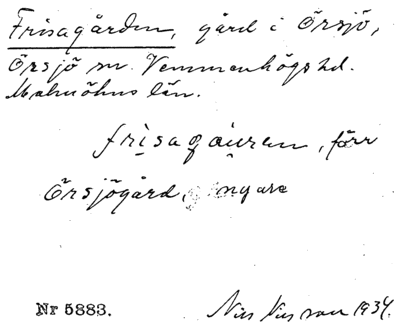 Frisagården, gård i Örsjö,
Örsjö sn. Vemmenhögs hd.
Malmöhus län.
frisagåuren, förr
Örsjögård, nyare
Nr 5883. Nils Nilsson 1934.